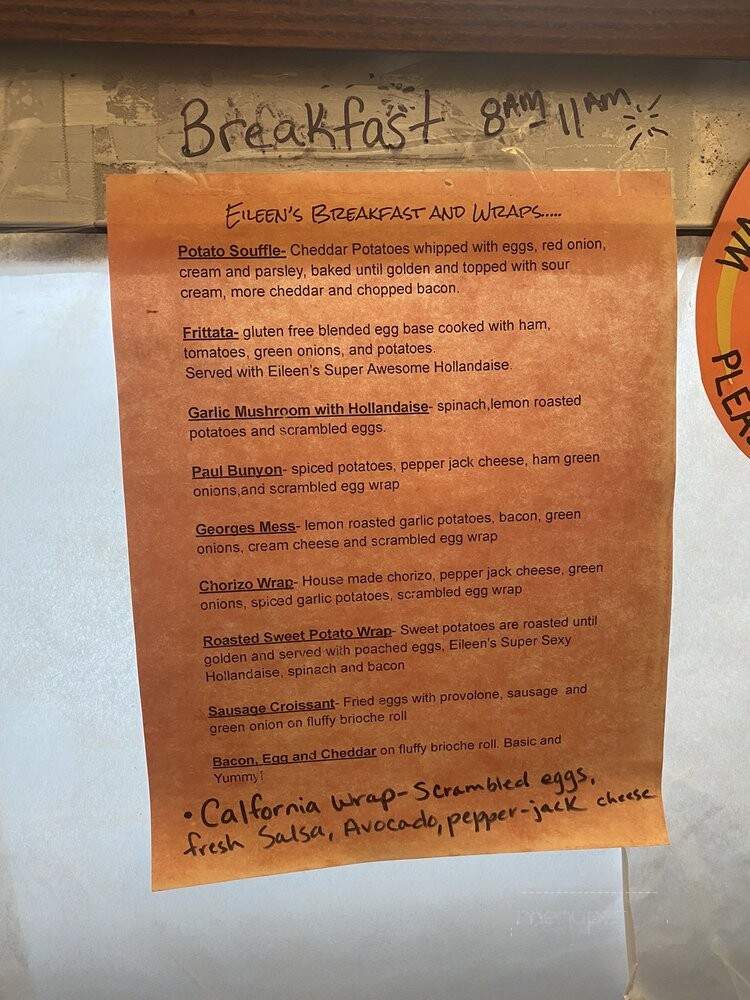 Breakfast 8AM - 11AM
EILEEN'S BREAKFAST AND WRAPS.....
Potato Souffle- Cheddar Potatoes whipped with eggs, red onion,
cream and parsley, baked until golden and topped with sour
cream, more cheddar and chopped bacon.
Frittata- gluten free blended egg base cooked with ham,
tomatoes, green onions, and potatoes.
Served with Eileen's Super Awesome Hollandaise.
Garlic Mushroom with Hollandaise- spinach,lemon roasted
potatoes and scrambled eggs.
Paul Bunyon- spiced potatoes, pepper jack cheese, ham green
onions,and scrambled egg wrap
Georges Mess- lemon roasted garlic potatoes, bacon, green
onions, cream cheese and scrambled egg wrap
Chorizo Wrap- House made chorizo, pepper jack cheese, green
onions, spiced garlic potatoes, scrambled egg wrap
Roasted Sweet Potato Wrap- Sweet potatoes are roasted until
golden and served with poached eggs, Eileen's Super Sexy
Hollandaise, spinach and bacon
Sausage Croissant- Fried eggs with provolone, sausage and
green onion on fluffy brioche roll
Bacon, Egg and Cheddar on fluffy brioche roll. Basic and
Yummy!
• Calfornia Wrap-Scrambled eggs,
fresh Salsa, Avocado, pepper-jack cheese
WA
PLEA